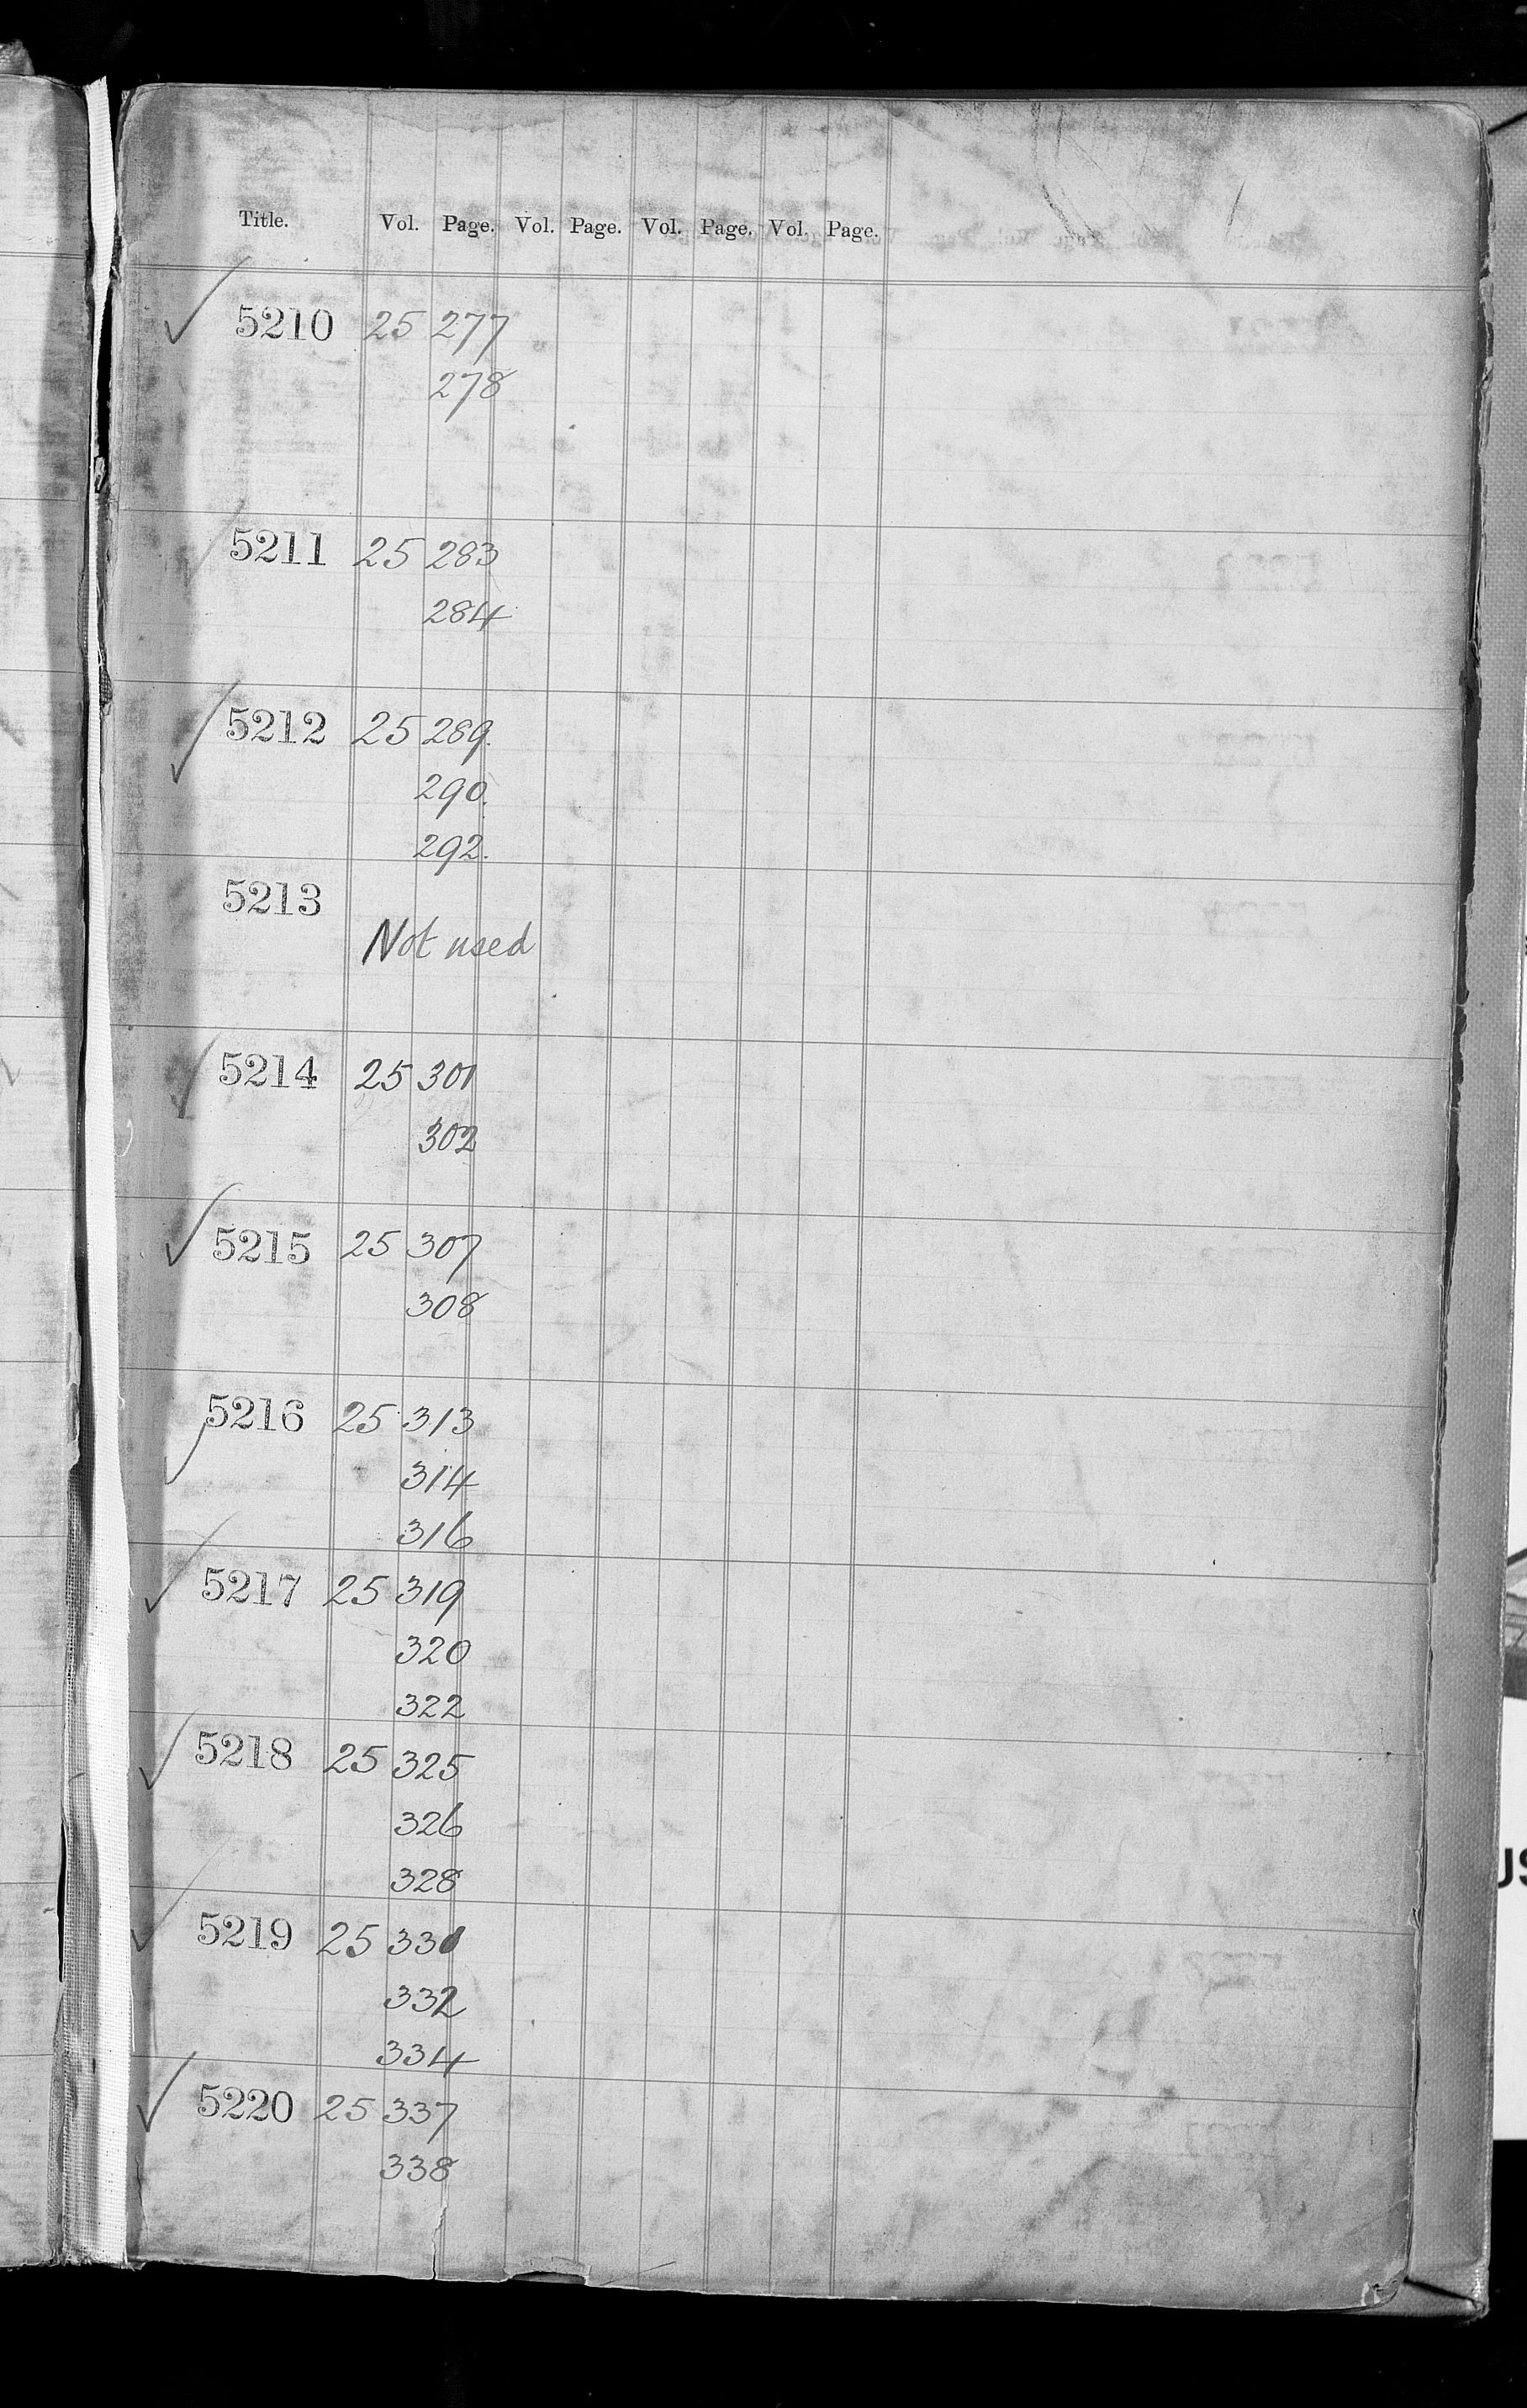 Title. Vol. Page. Vol. Page. Vol. Page. Vol. Page.
5210 25 277
278
5211 25 283
284
5212 25 289.
290.
292.
5213
Not used
5214 25 301
302
5215 25 307
308
5216 25 313
314
316
5217 25 319
320
322
5218 25 325
326
328
5219 25 331
332
334
5220 25 337
338
US